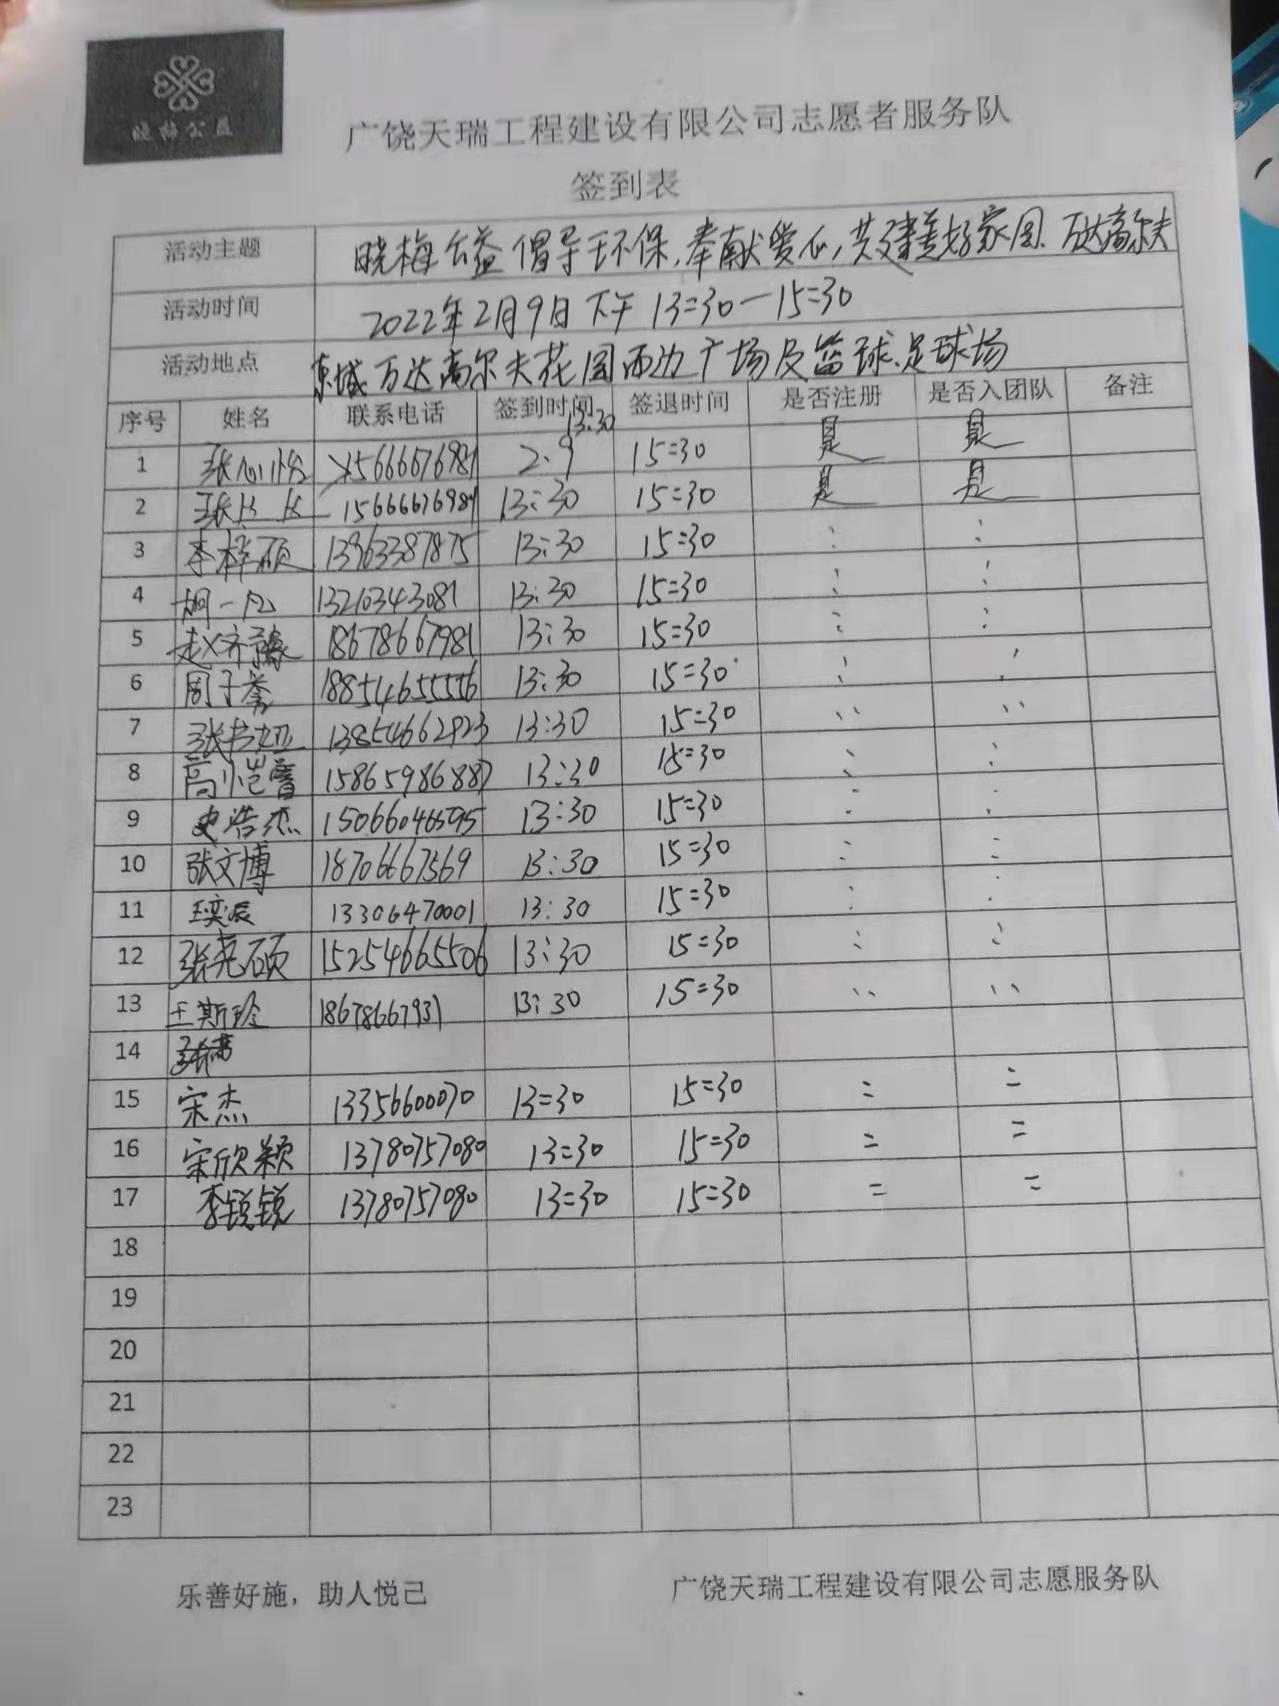 晓梅公益
广饶天瑞工程建设有限公司志愿者服务队
签到表
活动主题 晓梅公益 倡导环保,奉献爱心,共建美好家园、万达高尔夫
活动时间 2022年2月9日下午 13:30—15:30
活动地点 东城万达高尔夫花园西边广场及篮球、足球场
序号 姓名 联系电话 签到时间 签退时间 是否注册 是否入团队 备注
13:30
1 张心怡 15666676981 2.9 15:30 是 是
2 张 15666676981 13:30 15:30 是 是
3 李梓硕 13963387875 13:30 15:30 : :
4 胡一凡 13210343081 13:30 15:30 : :
5 赵齐豫 18678667981 13:30 15:30 : :
6 周子誉 18854655556 13:30 15:30 : :
7 张书娅 13854662923 13:30 15:30 `` ``
8 高 1586598688 13:30 15:30 : :
9 史浩杰 15066046595 13:30 15:30 : :
10 张文博 18706667569 13:30 15:30 : :
11 王奕辰 13306470001 13:30 15:30 : :
12 张尧硕 15254665506 13:30 15:30 : :
13 王斯玲 18678667931 13:30 15:30 `` ``
14
15 宋杰 13356600070 13:30 15:30 = =
16 宋欣颖 13780757080 13:30 15:30 = =
17 李锐锐 13780757080 13:30 15:30 = =
18
19
20
21
22
23
乐善好施，助人悦己 广饶天瑞工程建设有限公司志愿服务队